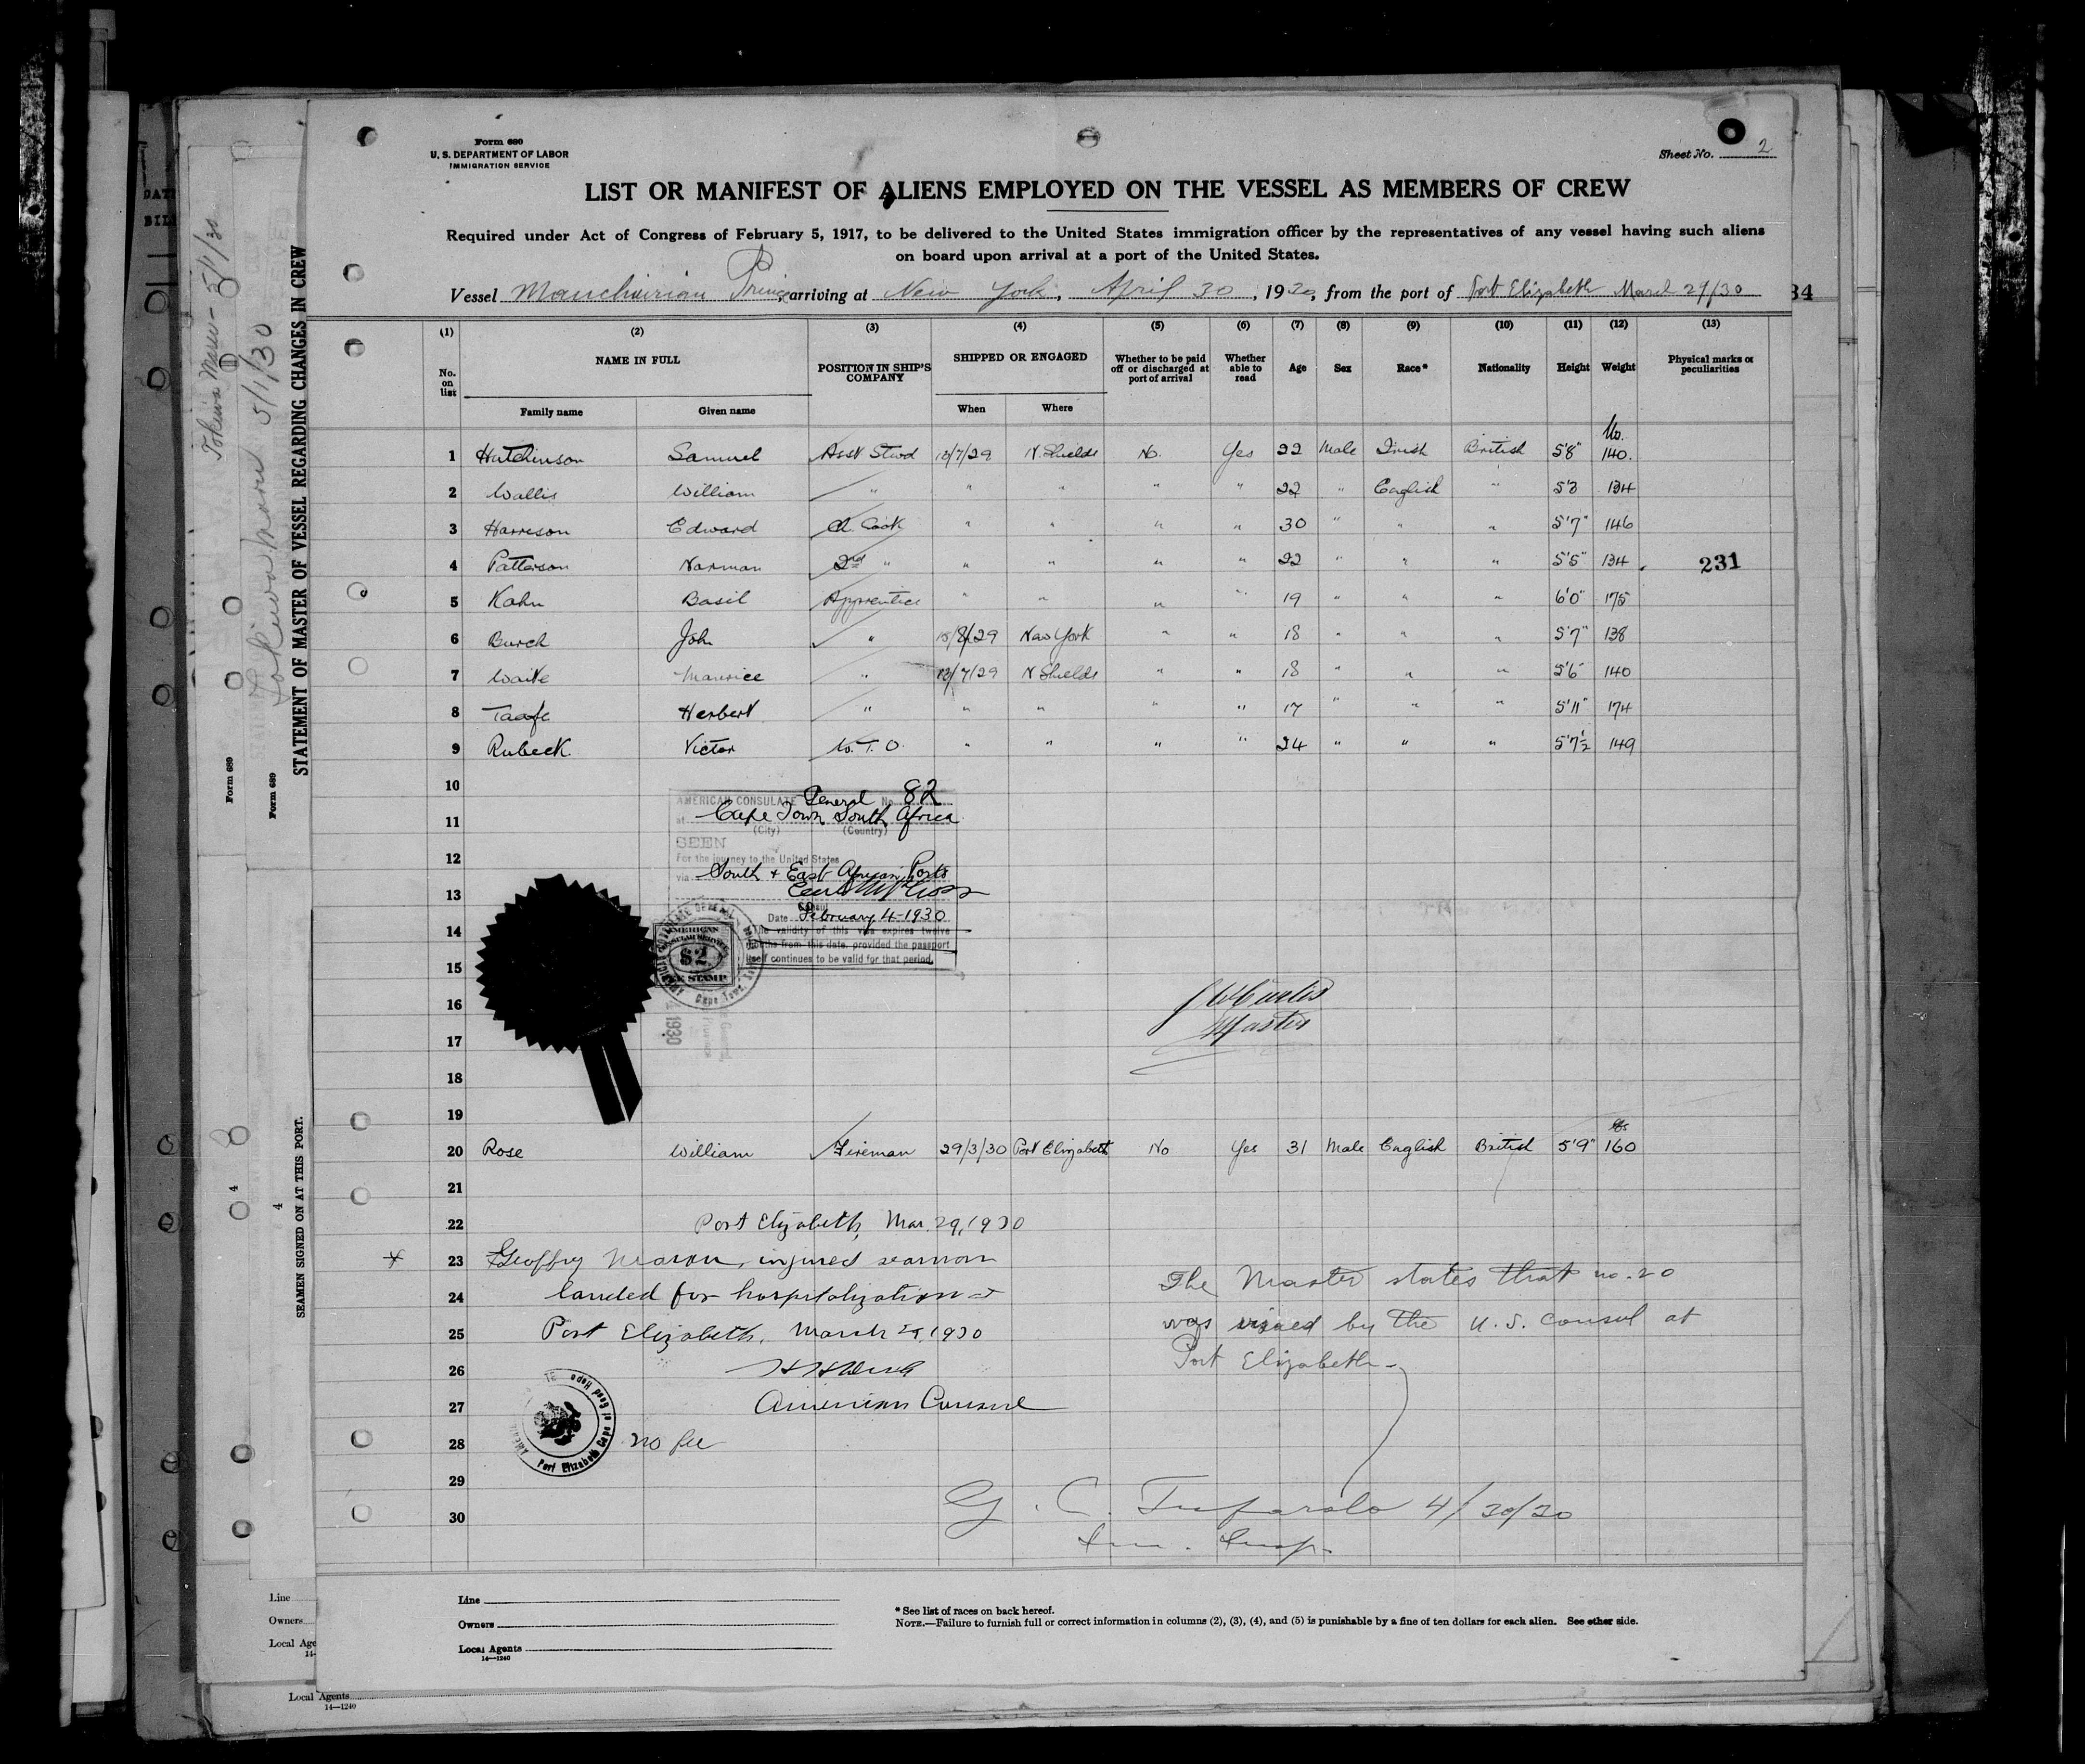 Form 680
U. S. DEPARTMENT OF LABOR
IMMIGRATION SERVICE
Sheet No. 2
LIST OR MANIFEST OF ALIENS EMPLOYED ON THE VESSEL AS MEMBERS OF CREW
Required under Act of Congress of February 5, 1917, to be delivered to the United States immigration officer by the representatives of any vessel having such aliens
on board upon arrival at a port of the United States.
Vessel Manchurian Prince, arriving at New York, April 30, 1930, from the port of Port Elizabeth March 29/30
34
(1) (2) (3) (4) (5) (6) (7) (8) (9) (10) (11) (12) (13)
No. on list NAME IN FULL POSITION IN SHIP'S COMPANY SHIPPED OR ENGAGED Whether to be paid off or discharged at port of arrival Whether able to read Age Sex Race* Nationality Height Weight Physical marks or peculiarities
Family name Given name When Where
1 Hutchinson Samuel Asst Stwd 12/7/29 N. Shields No. Yes 22 Male Irish British 5'8" 140.
2 Wallis William " " " " " 22 " English " 5'8 134
3 Harreson Edward Ch. Cook " " " " 30 " " " 5'7" 146
4 Patterson Norman 2nd " " " " " 22 " " " 5'5" 134 231
5 Kahn Basil Apprentice " " " " 19 " " " 6'0" 175
6 Burch John " 15/8/29 New York " " 18 " " " 5'7" 138
7 Waite Maurice " 12/7/29 N Shields " " 18 " " " 5'6" 140
8 Taafe Herbert " " " " " 17 " " " 5'11" 174
9 Rubeck Victor W. T. O. " " " " 24 " " " 5'7½ 149
10
11
12
13
14
15
16
17
18
19
AMERICAN CONSULATE General No. 82
at Cape Town South Africa
(City) (Country)
SEEN
For the journey to the United States
via South + East African Ports
Date February 4-1930
The validity of this visa expires twelve
months from this date, provided the passport
itself continues to be valid for that period.
AMERICAN
CONSULAR SERVICE
$2
FEE STAMP
1930
Curtis
Master
20 Rose William Fireman 29/3/30 Port Elizabeth No Yes 31 Male English British 5'9" 160
21
22 Port Elizabeth, Mar. 29, 1930
23 Geoffry Mason, injured seaman
24 landed for hospitalization at
25 Port Elizabeth, March 29, 1930
26
27 American Consul
28 no fee
29
30
Port Elizabeth Cape of Good Hope
The Master states that no. 20
was visaed by the U. S. Consul at
Port Elizabeth
G. C. 4/30/30
Imm. Insp.
Line
Owners
Local Agents
14—1240
* See list of races on back hereof.
NOTE.—Failure to furnish full or correct information in columns (2), (3), (4), and (5) is punishable by a fine of ten dollars for each alien. See other side.
STATEMENT OF MASTER OF VESSEL REGARDING CHANGES IN CREW
SEAMEN SIGNED ON AT THIS PORT.
Form 689
Form 689
4
4
Tokiwa Maru - 5/1/30
Tokiwa Maru 5/1/30
Line
Owners
Local Age
14-
Local Agents
14—1240